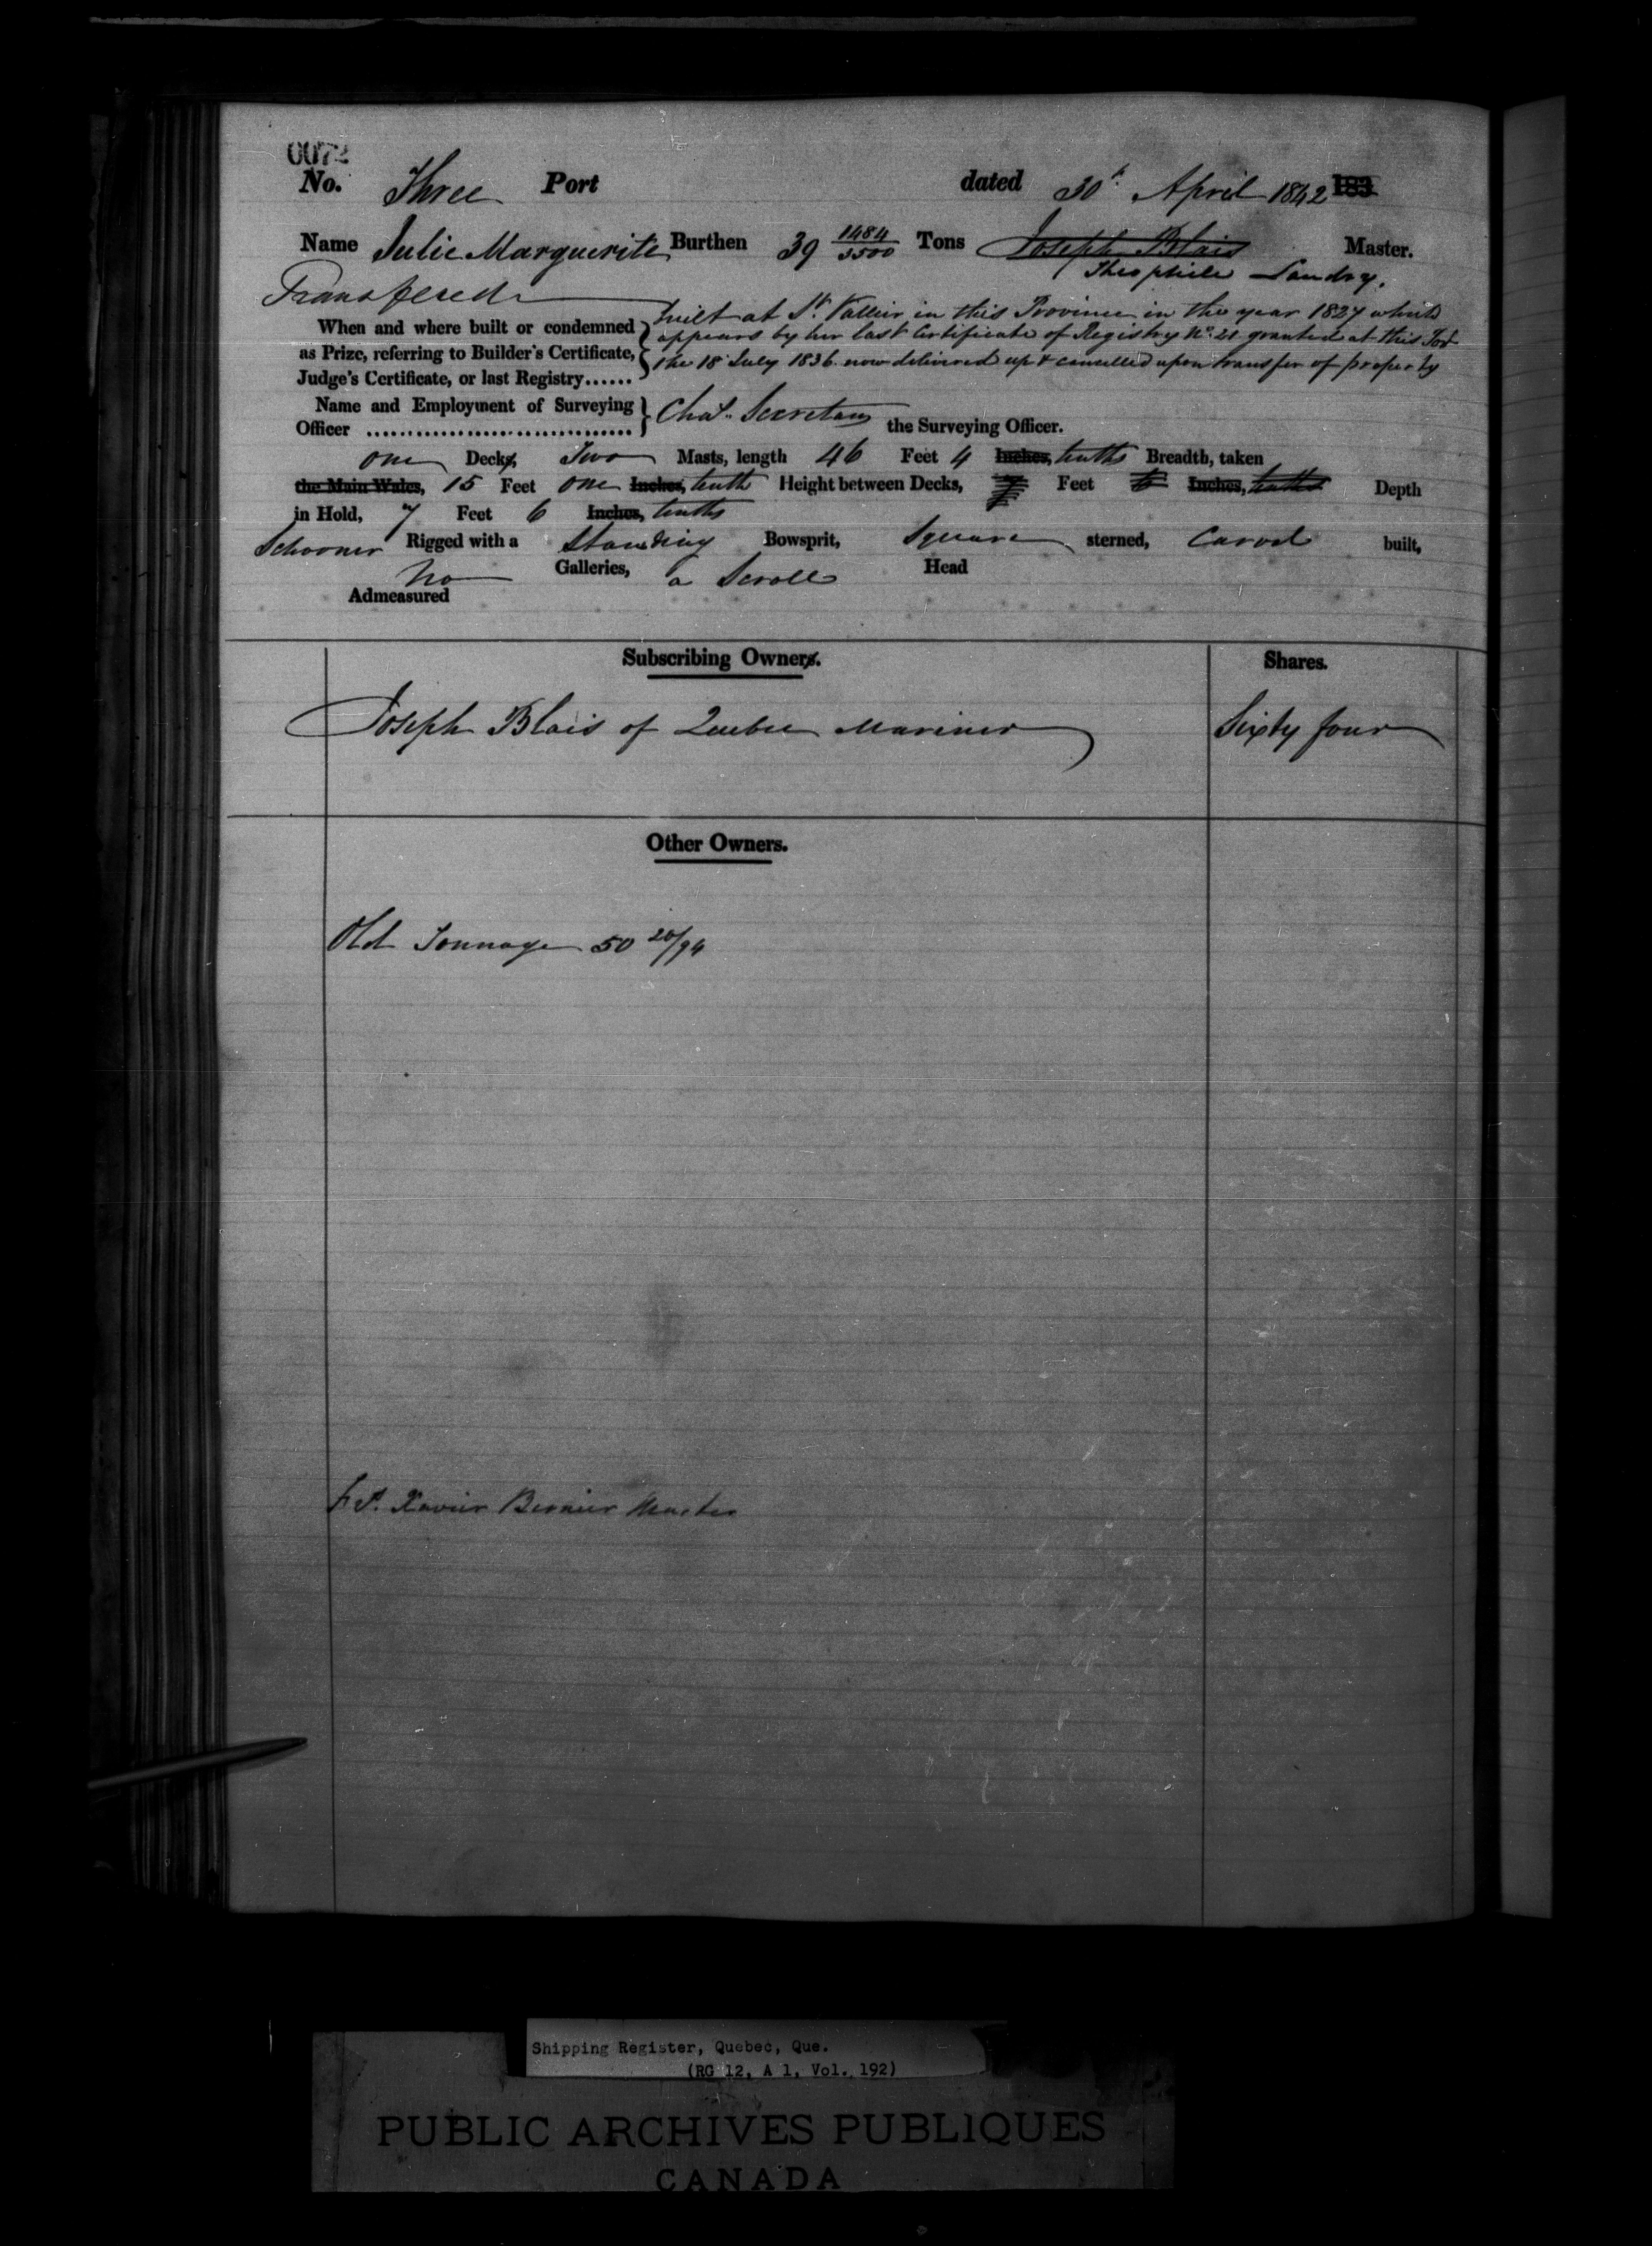 0072
No. Three Port dated 30th April 1842 183
Name Julie Marguerite Burthen 39 1484/3500 Tons Joseph Blais Master.
Theophile Landry.
Transfered
When and where built or condemned as Prize, referring to Builder's Certificate, Judge's Certificate, or last Registry......
built at St. Vallier in this Province in the year 1827 which
appears by her last Certificate of Registry No. 21 granted at this Port
the 18 July 1836 now delivered up & cancelled upon transfer of property
Name and Employment of Surveying
Officer ................................ Chas. Secretan the Surveying Officer.
one Decks, Two Masts, length 46 Feet 4 Inches, tenths Breadth, taken
the Main Wales, 15 Feet one Inches, tenth Height between Decks, Feet Inches, tenths Depth
in Hold, 7 Feet 6 Inches, tenths
Schooner Rigged with a Standing Bowsprit, Square sterned, Carvel built,
No Galleries, a Scroll Head
Admeasured
Subscribing Owners. Shares.
Joseph Blais of Quebec Mariner Sixty four
Other Owners.
Old Tonnage 50 20/94
Xavier Bernier Master
Shipping Register, Quebec, Que.
(RG 12, A 1, Vol. 192)
PUBLIC ARCHIVES PUBLIQUES
CANADA